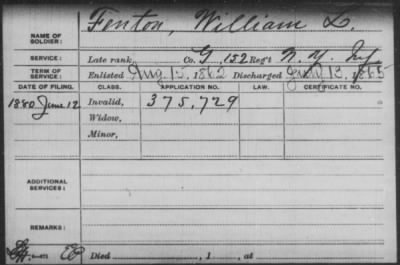 NAME OF SOLDIER: Fenton, William L.
SERVICE: Late rank, Co. G, 152 Reg't N.Y. Inf
TERM OF SERVICE: Enlisted Aug. 15, 1862 Discharged July 13, 1865
DATE OF FILING. CLASS. APPLICATION NO. LAW. CERTIFICATE NO.
1880 June 12 Invalid, 375,729
Widow,
Minor,
ADDITIONAL SERVICES:
REMARKS:
Died , 1 , at